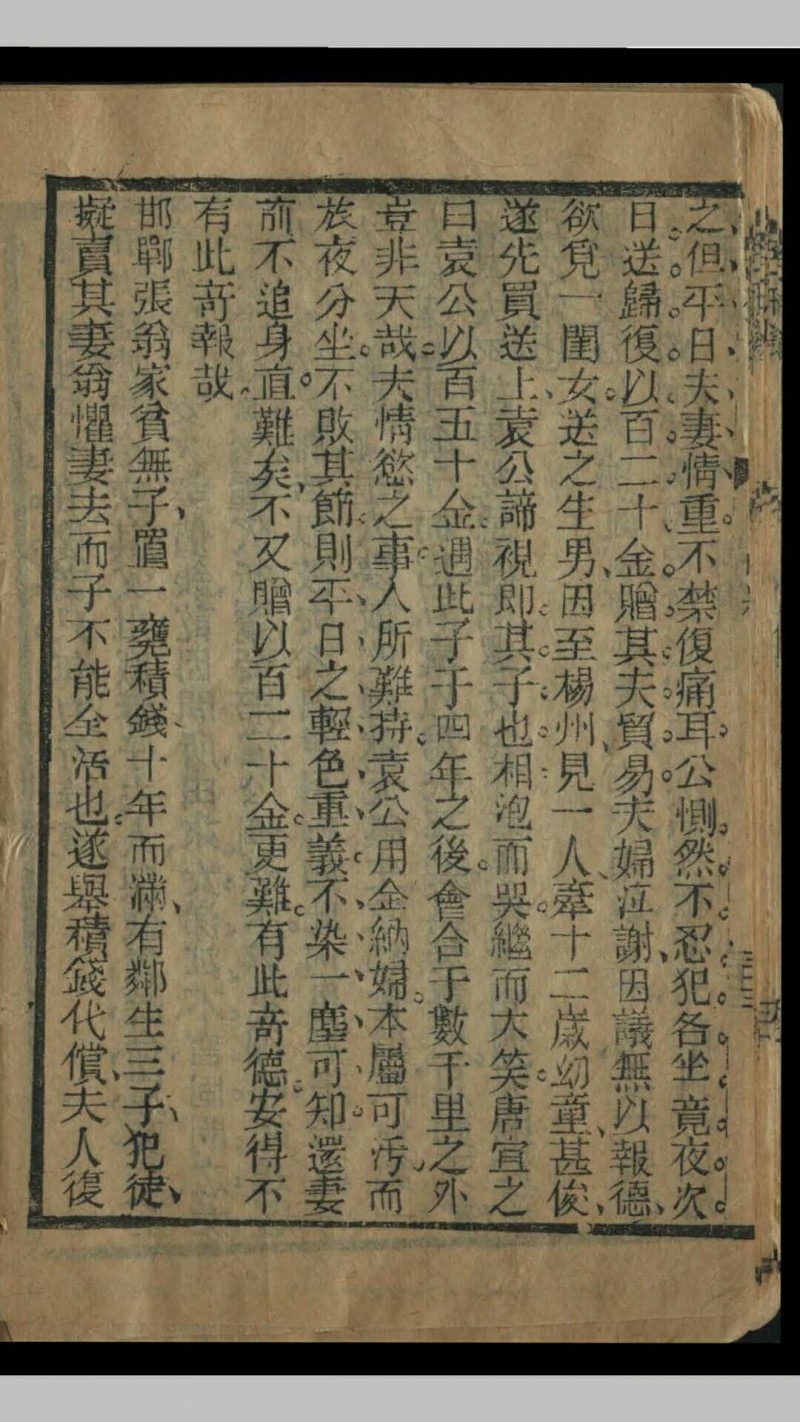 之但平日夫妻情重不禁復痛耳公惻然不忍犯各坐竟夜次
日送歸復以百二十金贈其夫貿易夫婦泣謝因議無以報德
欲覓一閨女送之生男因至楊州見一人牽十二歲幼童甚俊
遂先買送上袁公諦視即其子也相泡而哭繼而大笑唐宜之
曰袁公以百五十金遇此子于四年之後會合于數千里之外
豈非天哉夫情慾之事人所難持袁公用金納婦本屬可汚而
族夜分坐不敗其節則平日之輕色重義不染一塵可知還妻
而不追身直難矣不又贈以百二十金更難有此奇德安得不
有此奇報哉
邯鄲張翁家貧無子置一甕積錢十年而滿有鄰生三子犯徒
擬賣其妻翁懼妻去而子不能全活也遂舉積錢代償夫人復